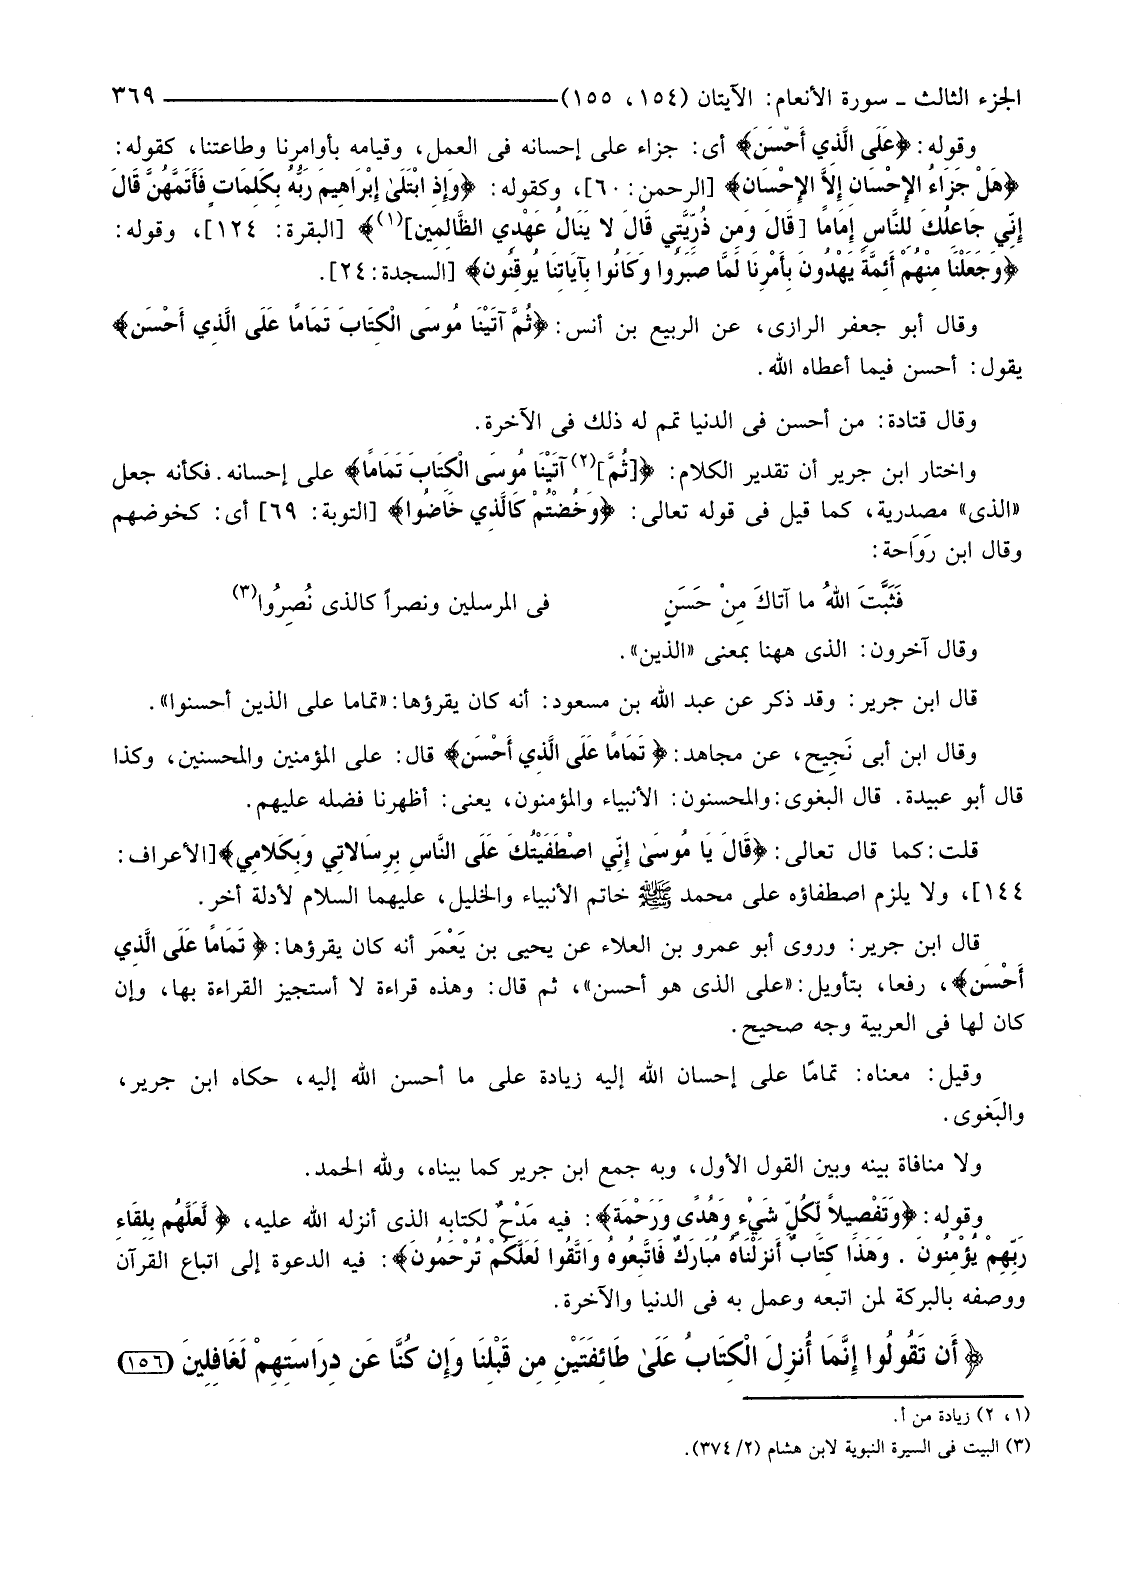 الجزء الثالث ـ سورة الأنعام: الآيتان (١٥٤، ١٥٥) ٣٦٩
وقوله: ﴿عَلَى الَّذِي أَحْسَنَ﴾ أى: جزاء على إحسانه فى العمل، وقيامه بأوامرنا وطاعتنا، كقوله:
﴿هَلْ جَزَاءُ الإِحْسَانِ إِلاَّ الإِحْسَان﴾ [الرحمن: ٦٠]، وكقوله: ﴿وَإِذِ ابْتَلَىٰ إِبْرَاهِيمَ رَبُّهُ بِكَلِمَاتٍ فَأَتَمَّهُنَّ قَالَ
إِنِّي جَاعِلُكَ لِلنَّاسِ إِمَامًا [قَالَ وَمِن ذُرِّيَّتِي قَالَ لا يَنَالُ عَهْدِي الظَّالِمِين](١)﴾ [البقرة: ١٢٤]، وقوله:
﴿وَجَعَلْنَا مِنْهُمْ أَئِمَّةً يَهْدُونَ بِأَمْرِنَا لَمَّا صَبَرُوا وَكَانُوا بِآيَاتِنَا يُوقِنُون﴾ [السجدة: ٢٤].
وقال أبو جعفر الرازى، عن الربيع بن أنس: ﴿ثُمَّ آتَيْنَا مُوسَى الْكِتَابَ تَمَامًا عَلَى الَّذِي أَحْسَن﴾
يقول: أحسن فيما أعطاه الله.
وقال قتادة: من أحسن فى الدنيا تمم له ذلك فى الآخرة.
واختار ابن جرير أن تقدير الكلام: ﴿[ثُمَّ](٢) آتَيْنَا مُوسَى الْكِتَابَ تَمَامًا﴾ على إحسانه. فكأنه جعل
«الذى» مصدرية، كما قيل فى قوله تعالى: ﴿وَخُضْتُمْ كَالَّذِي خَاضُوا﴾ [التوبة: ٦٩] أى: كخوضهم
وقال ابن رَوَاحة:
فَثَبَّتَ اللهُ ما آتاكَ مِنْ حَسَنٍ فى المرسلين ونصراً كالذى نُصِرُوا(٣)
وقال آخرون: الذى ههنا بمعنى «الذين».
قال ابن جرير: وقد ذكر عن عبد الله بن مسعود: أنه كان يقرؤها: «تماما على الذين أحسنوا».
وقال ابن أبى نَجِيح، عن مجاهد: ﴿تَمَامًا عَلَى الَّذِي أَحْسَن﴾ قال: على المؤمنين والمحسنين، وكذا
قال أبو عبيدة. قال البغوى: والمحسنون: الأنبياء والمؤمنون، يعنى: أظهرنا فضله عليهم.
قلت: كما قال تعالى: ﴿قَالَ يَا مُوسَىٰ إِنِّي اصْطَفَيْتُكَ عَلَى النَّاسِ بِرِسَالاتِي وَبِكَلامِي﴾[الأعراف:
١٤٤]، ولا يلزم اصطفاؤه على محمد ﷺ خاتم الأنبياء والخليل، عليهما السلام لأدلة أخر.
قال ابن جرير: وروى أبو عمرو بن العلاء عن يحيى بن يَعْمَر أنه كان يقرؤها: ﴿تَمَامًا عَلَى الَّذِي
أَحْسَن﴾، رفعا، بتأويل: «على الذى هو أحسن»، ثم قال: وهذه قراءة لا أستجيز القراءة بها، وإن
كان لها فى العربية وجه صحيح.
وقيل: معناه: تمامًا على إحسان الله إليه زيادة على ما أحسن الله إليه، حكاه ابن جرير،
والبَغوى.
ولا منافاة بينه وبين القول الأول، وبه جمع ابن جرير كما بيناه، ولله الحمد.
وقوله: ﴿وَتَفْصِيلاً لِّكُلِّ شَيْءٍ وَهُدًى وَرَحْمَة﴾: فيه مَدْحٌ لكتابه الذى أنزله الله عليه، ﴿لَّعَلَّهُم بِلِقَاءِ
رَبِّهِمْ يُؤْمِنُونَ . وَهَذَا كِتَابٌ أَنزَلْنَاهُ مُبَارَكٌ فَاتَّبِعُوهُ وَاتَّقُوا لَعَلَّكُمْ تُرْحَمُونَ﴾: فيه الدعوة إلى اتباع القرآن
ووصفه بالبركة لمن اتبعه وعمل به فى الدنيا والآخرة.
﴿أَن تَقُولُوا إِنَّمَا أُنزِلَ الْكِتَابُ عَلَىٰ طَائِفَتَيْنِ مِن قَبْلِنَا وَإِن كُنَّا عَن دِرَاسَتِهِمْ لَغَافِلِينَ (١٥٦)
(١، ٢) زيادة من أ.
(٣) البيت فى السيرة النبوية لابن هشام (٢/ ٣٧٤).